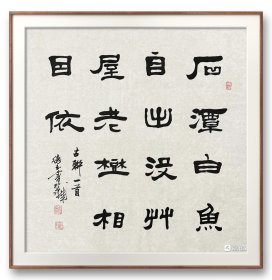 石潭白魚
自出没艸
屋老樹相
因依
古聯一首